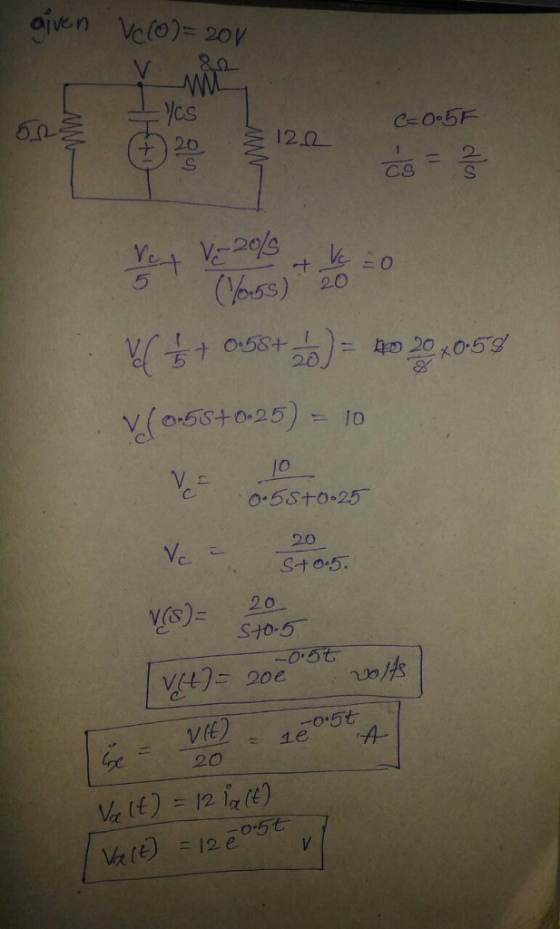 given Vc(0)=20V
V 8Ω
5Ω 1/CS + − 20/S 12Ω C=0.5F
1/CS = 2/S
Vc/5 + (Vc-20/S)/(1/0.5S) + Vc/20 = 0
Vc(1/5 + 0.5S + 1/20) = 20/S × 0.5S
Vc(0.5S+0.25) = 10
Vc = 10/(0.5S+0.25)
Vc = 20/(S+0.5).
Vc(S) = 20/(S+0.5)
Vc(t) = 20e^-0.5t volts
ix = V(t)/20 = 1e^-0.5t A
Vx(t) = 12 ix(t)
Vx(t) = 12e^-0.5t V